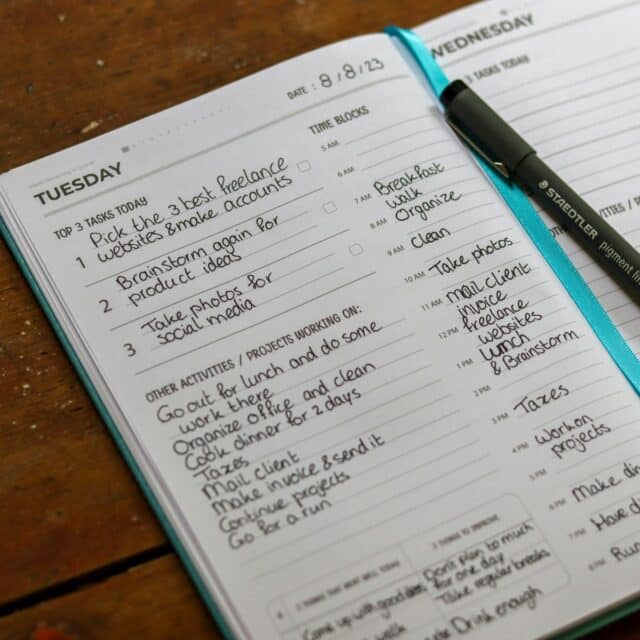 TUESDAY
DATE : 8/8/23
TOP 3 TASKS TODAY
1 Pick the 3 best freelance
websites & make accounts
2 Brainstorm again for
product ideas
3 Take photos for
social media
OTHER ACTIVITIES / PROJECTS WORKING ON:
Go out for lunch and do some
work there
Organize office and clean
Cook dinner for 2 days
Taxes
Mail client
Make invoice & send it
Continue projects
Go for a run
TIME BLOCKS
5 AM
6 AM
7 AM Breakfast
walk
8 AM Organize
9 AM Clean
10 AM Take photos
11 AM Mail client
invoice
12 PM freelance
websites
1 PM Lunch
& Brainstorm
2 PM
3 PM Taxes
4 PM work on
projects
5 PM
6 PM Make
7 PM Have
8 PM Run
3 THINGS THAT WENT WELL TODAY
Come up with good
walk
3 THINGS TO IMPROVE
Don't plan too much
for one day
Take regular breaks
Drink enough
WEDNESDAY
3 TASKS TODAY
STAEDTLER
pigment